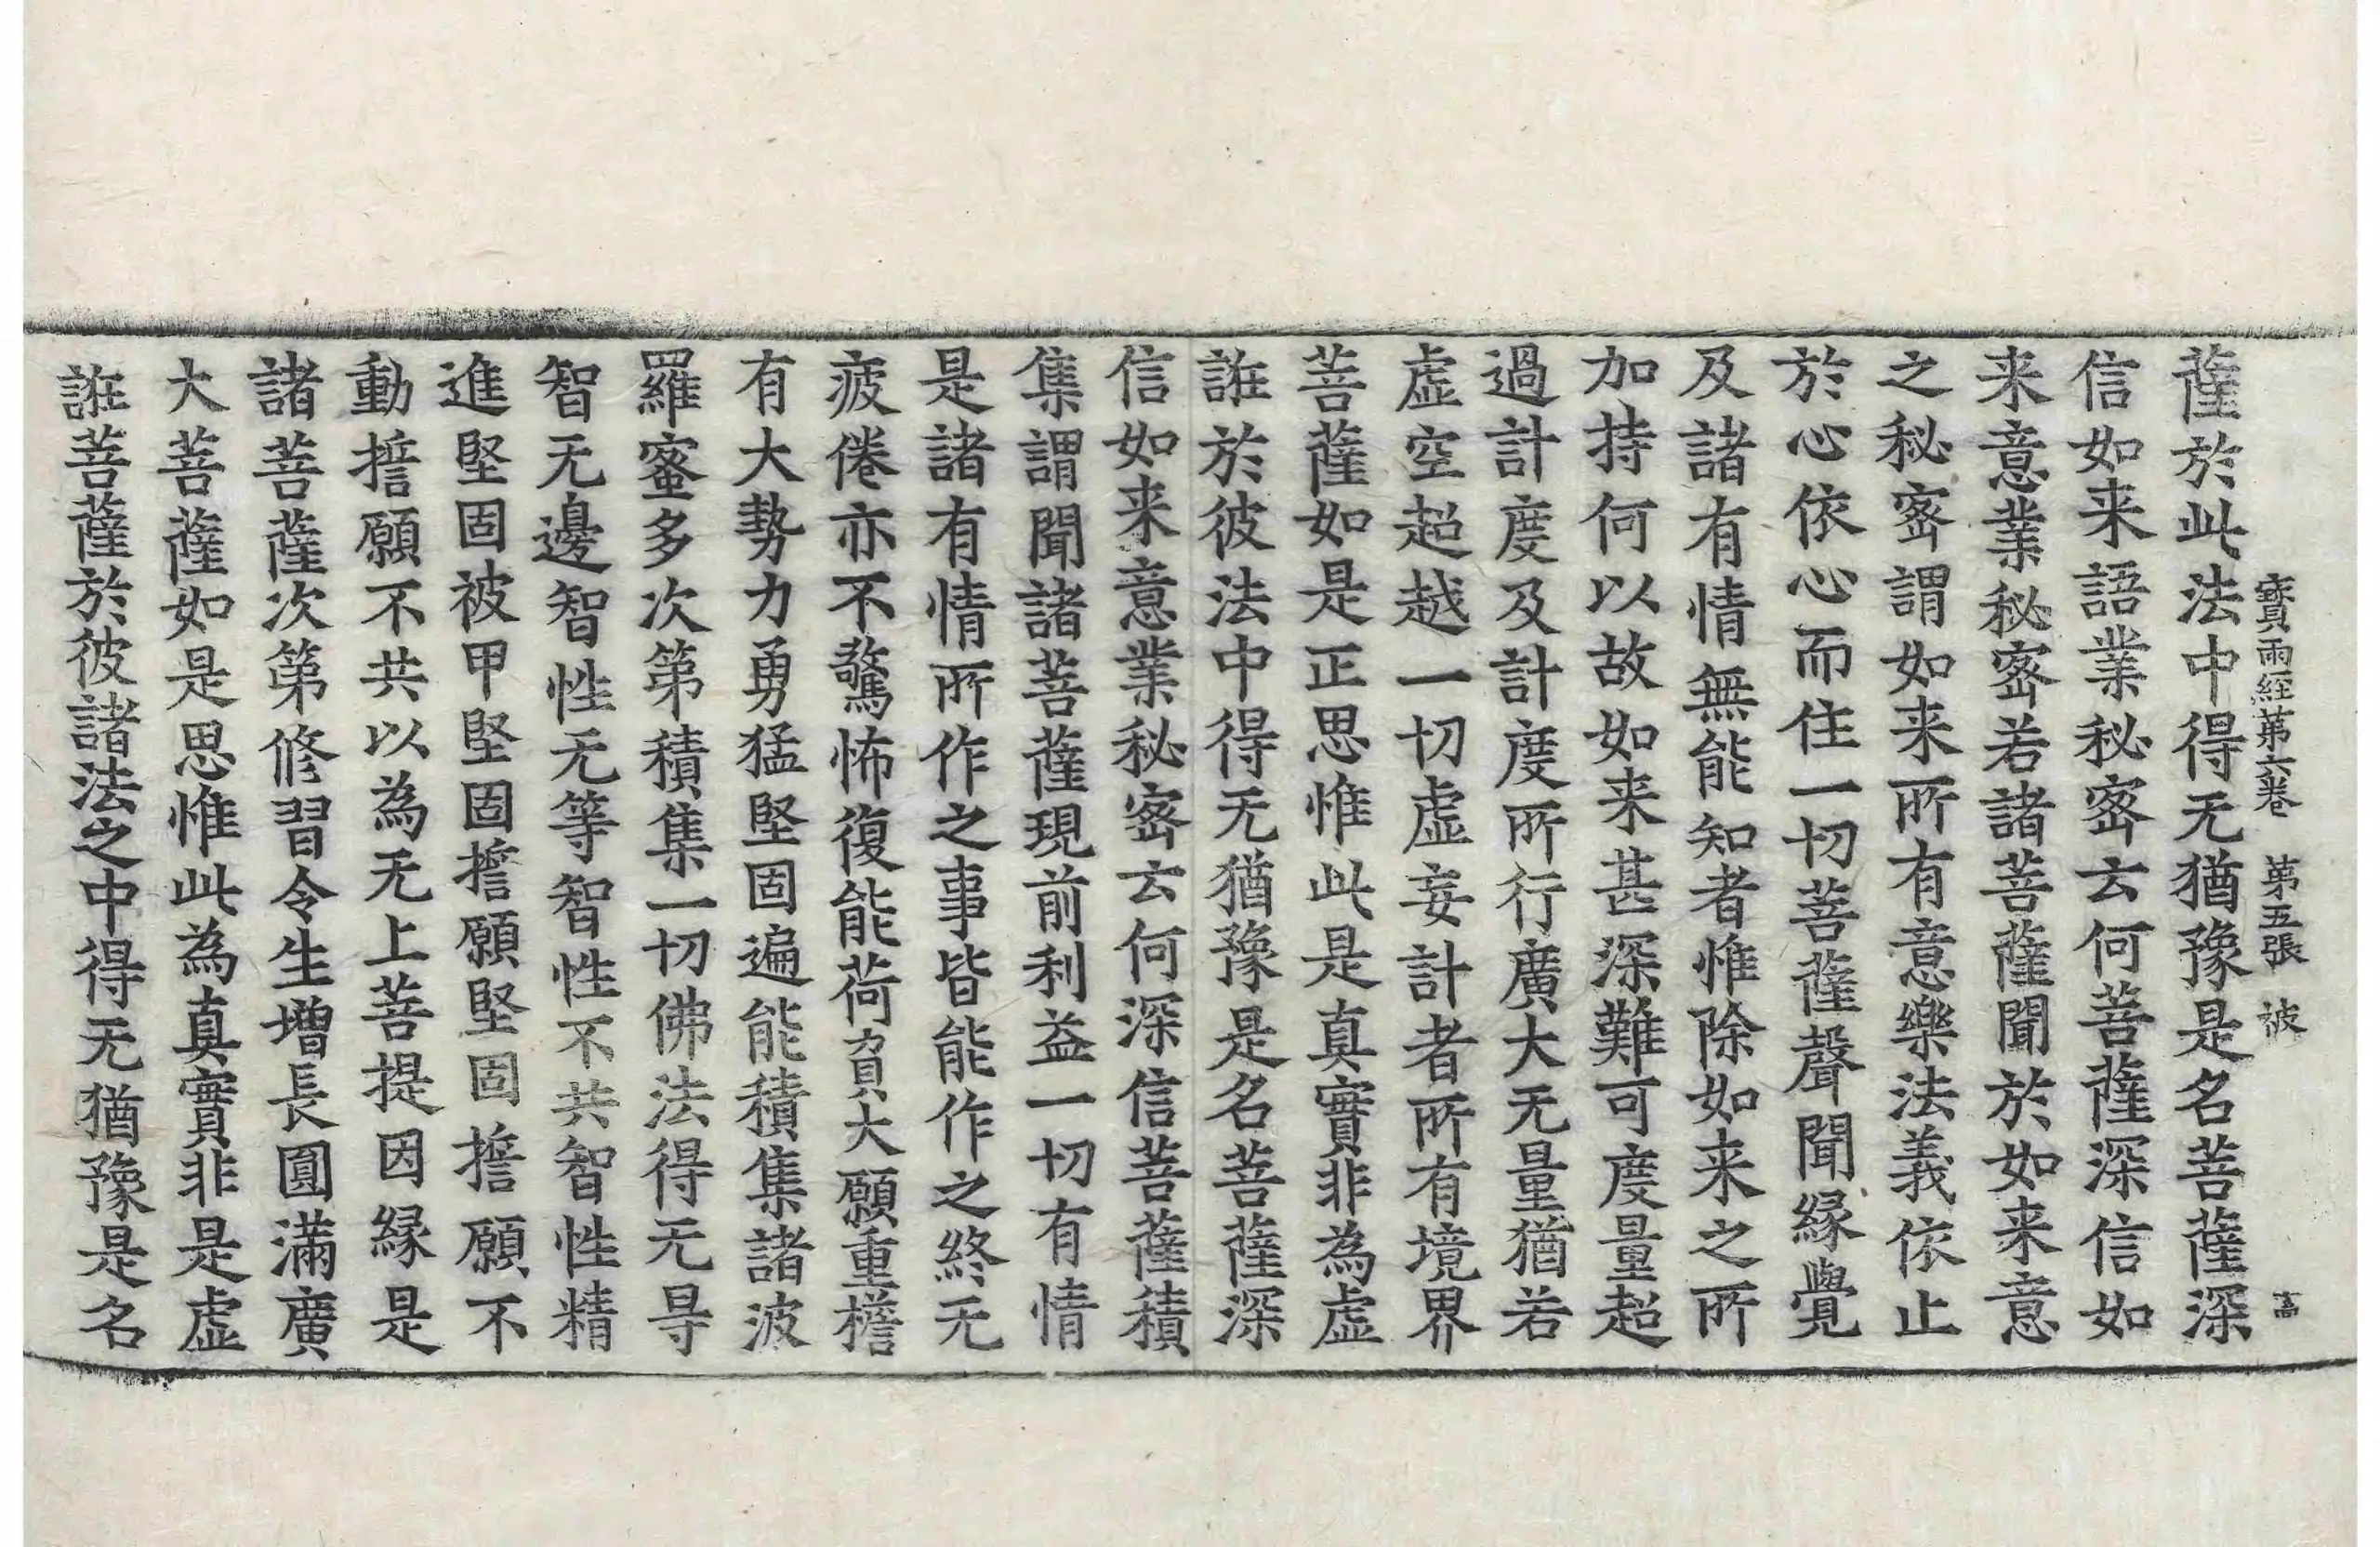 寶雨經第六卷　第五張　被
薩於此法中得无猶豫是名菩薩深
信如来語業秘密云何菩薩深信如
来意業秘密若諸菩薩聞於如来意
之秘密謂如来所有意樂法義依止
於心依心而住一切菩薩聲聞緣覺
及諸有情無能知者惟除如来之所
加持何以故如来甚深難可度量超
過計度及計度所行廣大无量猶若
虛空超越一切虛妄計者所有境界
菩薩如是正思惟此是真實非為虛
誑於彼法中得无猶豫是名菩薩深
信如来意業秘密云何深信菩薩積
集謂聞諸菩薩現前利益一切有情
是諸有情所作之事皆能作之終无
疲倦亦不驚怖復能荷負大願重擔
有大勢力勇猛堅固遍能積集諸波
羅蜜多次第積集一切佛法得无㝵
智无邊智性无等智性不共智性精
進堅固被甲堅固擔願堅固擔願不
動誓願不共以為无上菩提因緣是
諸菩薩次第修習令生增長圓滿廣
大菩薩如是思惟此為真實非是虛
誑菩薩於彼諸法之中得无猶豫是名